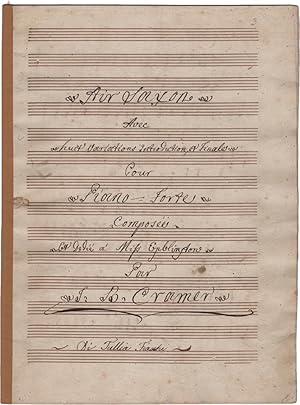 Air Saxon
Avec
huit Variations Introduction et Finale
Pour
Piano=Forte
Composée
et Dedié a Miss
Par
J. B. Cramer
Di Tullia